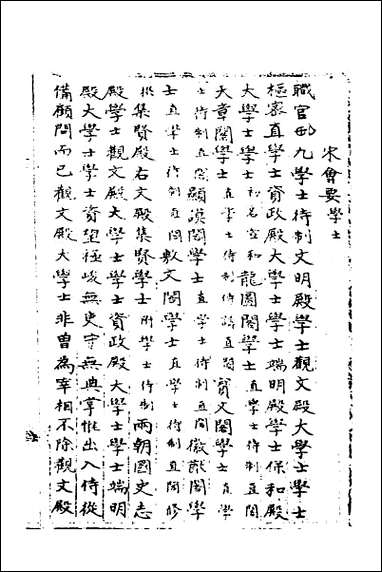 宋會要學士
職官 九學士待制文明殿學士觀文殿大學士學士
樞密直學士資政殿大學士學士端明殿學士保和殿
大學士學士初名宣和龍圖閣學士直學士待制直閣
天章閣學士直學士待制直閣寶文閣學士直學
士待制直閣顯謨閣學士直學士待制直閣徽猷閣學
士直學士待制直閣敷文閣學士直學士待制直閣修
撰集賢殿右文殿集賢學士附學士待制兩朝國史志
殿學士觀文殿大學士學士資政殿大學士學士端明
殿大學士學士資望極峻無吏守無典掌惟出入侍從
備顧問而已觀文殿大學士非曾為宰相不除觀文殿